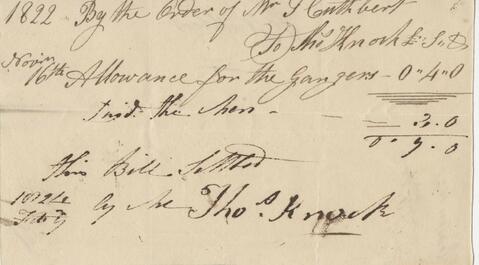 1822 By the Order of Mr J Cuthbert
To Thos Knock £ S D
Novr
16th Allowance for the Gangers - 0 " 4 " 0
Paid the Men - 3 . 0
0 . 7 . 0
This Bill Settled
by Me Thos. Knock